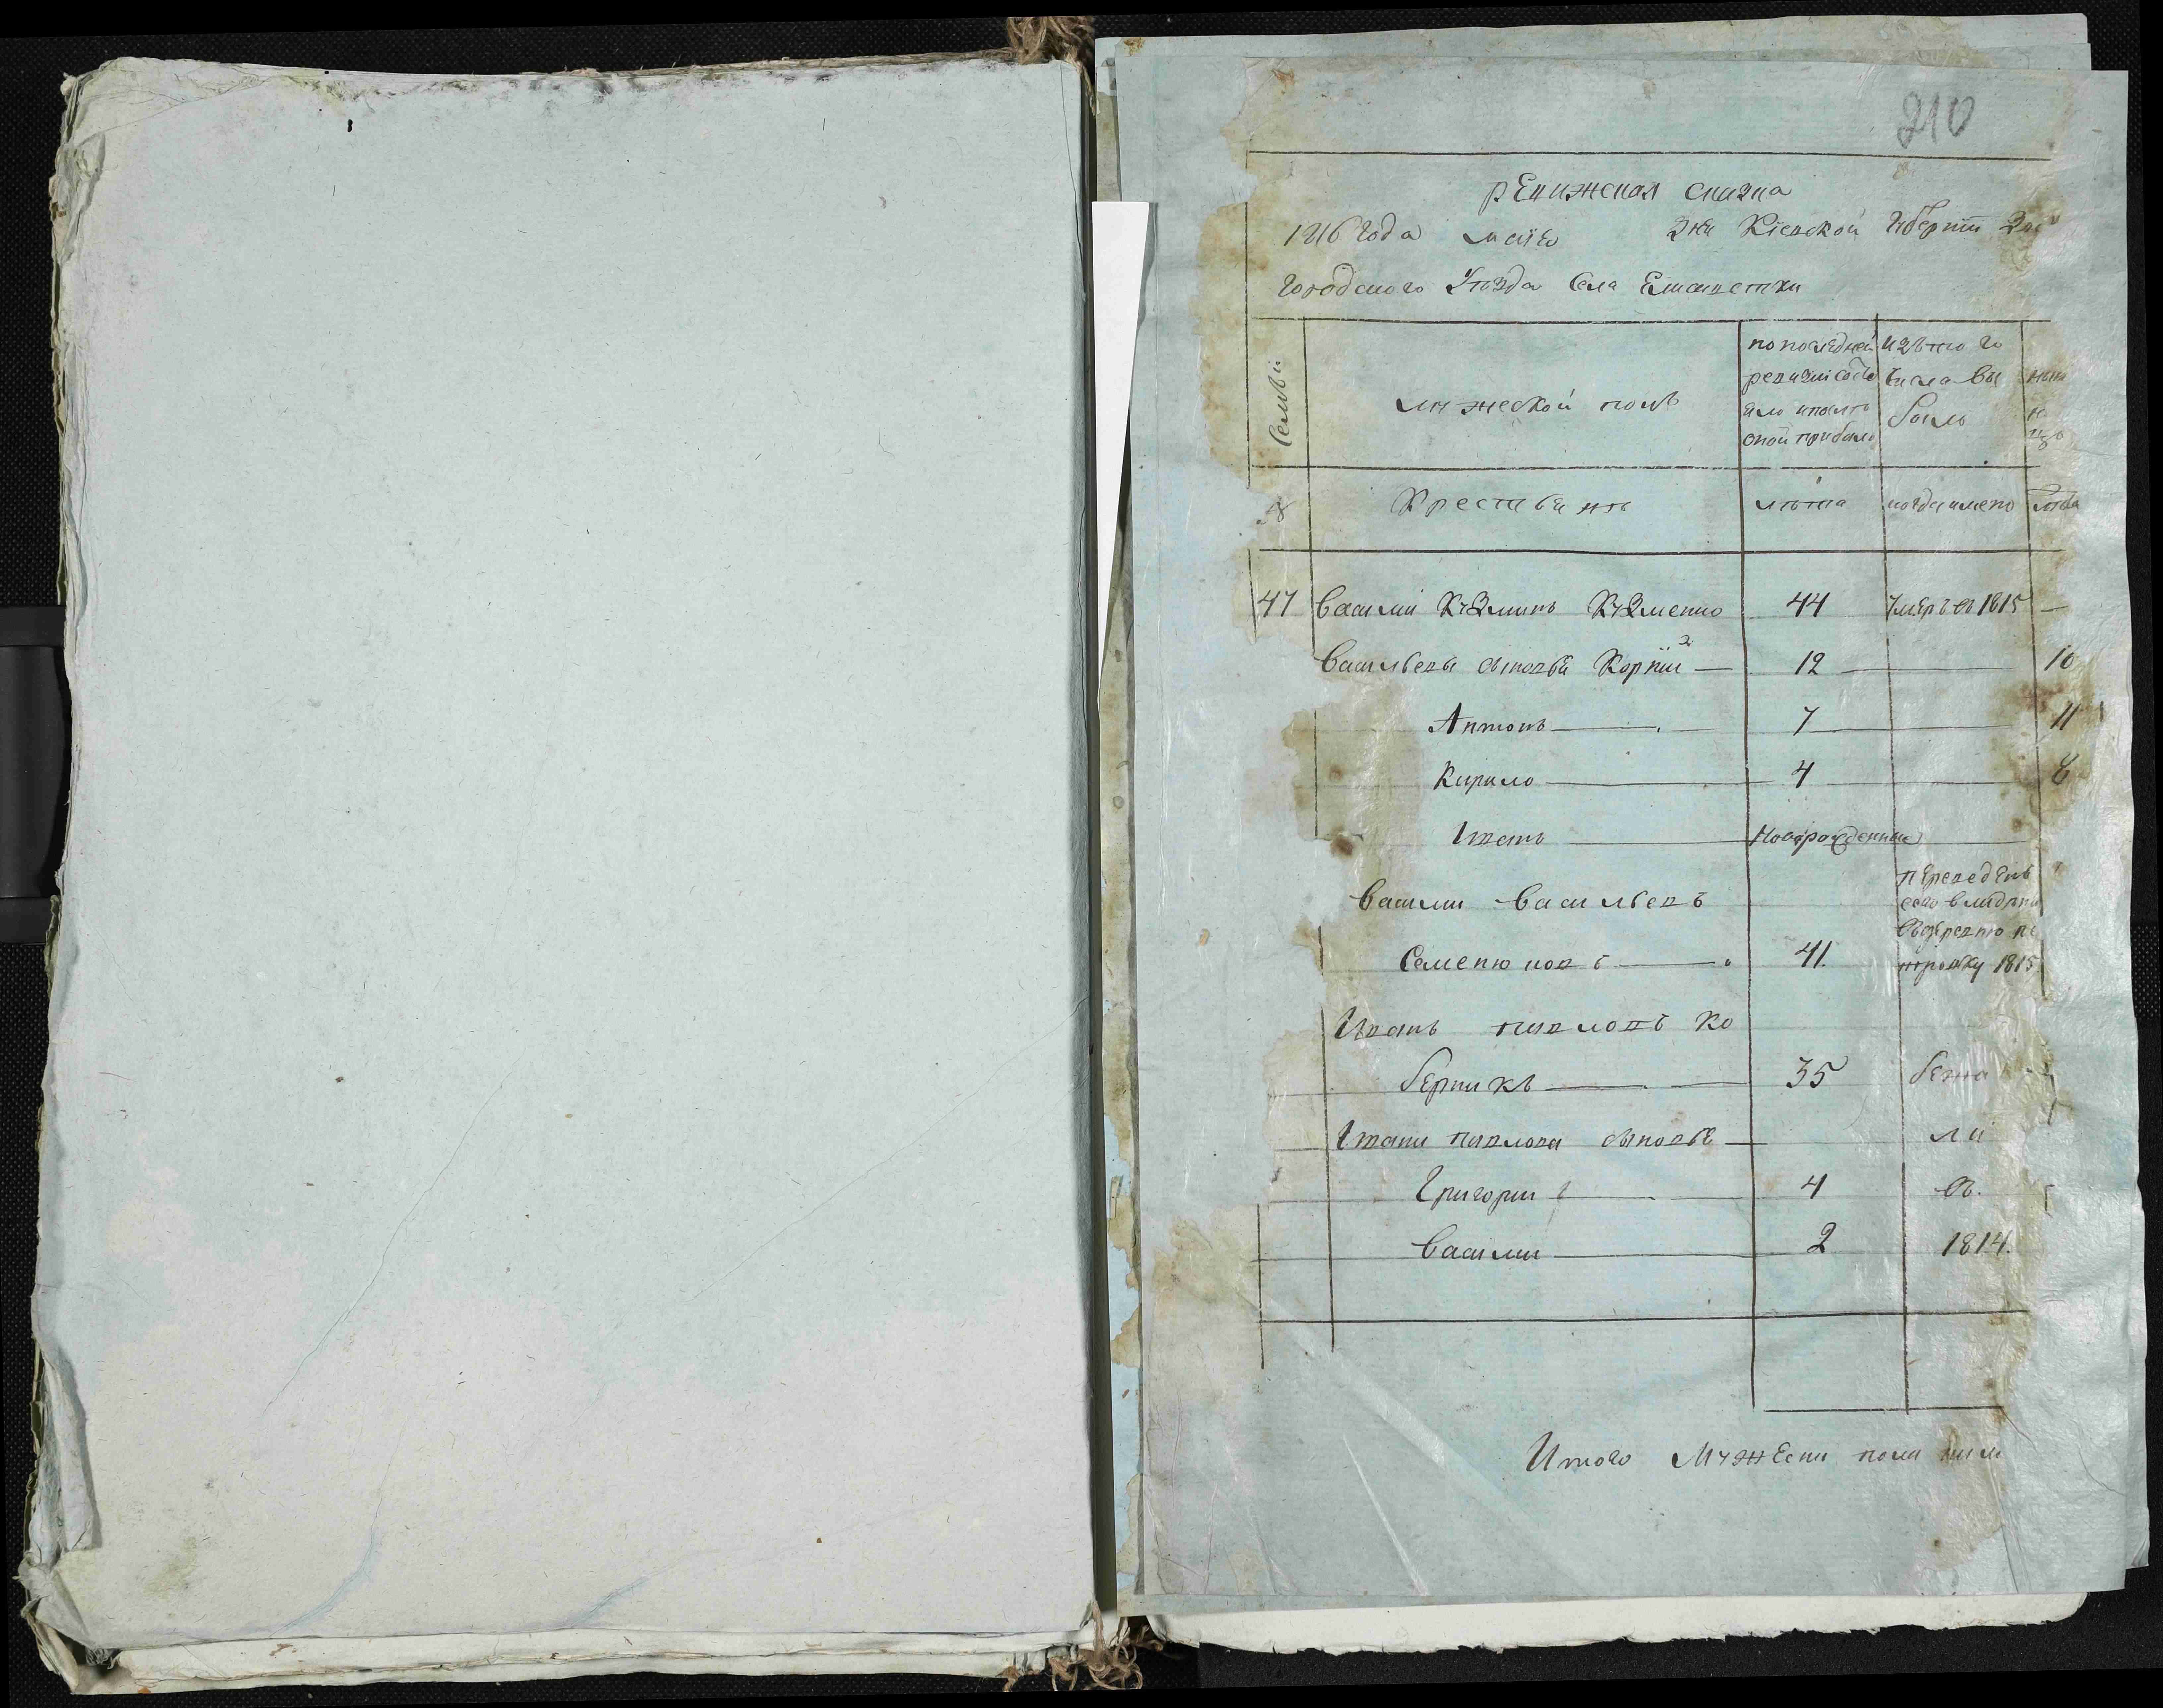 210
ревижская сказка
1816 года маія дня Кіевской Губерніи Зве
городского Уезда Села
Семьи
мужеской полъ
по последней
ревизіи состо
яло и после
оной прибыло
изътого
числа вы
было
№
Крестьянъ
лета
когда имено
лета
47 Василий Кузминъ Кузменко 44 умеръ въ 1815 —
Васильевы сыновья Корній 2й — 12 — 16
Антонъ — 7 — 11
Кирило — 4 — 8
Иванъ — Новорожденный
Василий Васильевъ
переведенъ
Семенюковъ — 41.
1815
Иванъ павловъ Ко
берникъ — 35 бежа
Ивана павлова сыновье — ли
Григорий — 4 въ.
Василий — 2 1814.
Итого Мужеска пола